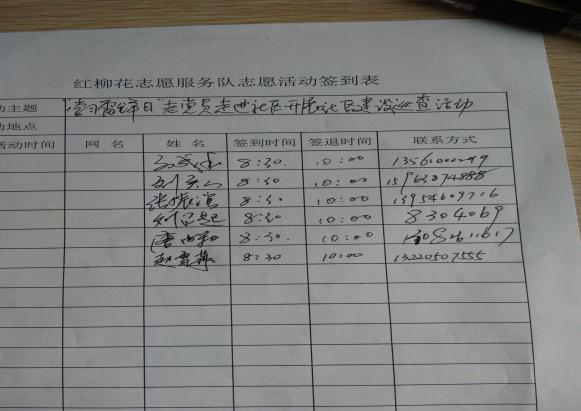 红柳花志愿服务队志愿活动签到表
动主题 "学习雷锋日"老党员走进社区开展社区建设巡查活动
动地点
活动时间 网名 姓名 签到时间 签退时间 联系方式
8:30. 10:00 13561000299
8:30 10:00 15963094888
张振营 8:30 10:00 13954609716
8:30 10:00 8304069
8:30. 10:00
赵雪萍 8:30 10:00 13220507555